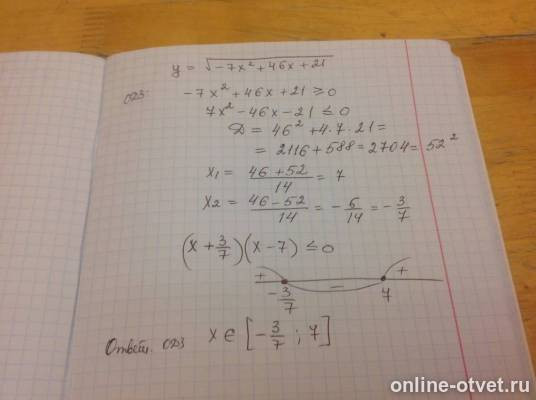 y = √-7x² + 46x + 21
ОДЗ: -7x² + 46x + 21 ≥ 0
7x² - 46x - 21 ≤ 0
D = 46² + 4·7·21 =
= 2116 + 588 = 2704 = 52²
x₁ = 46 + 52 / 14 = 7
x₂ = 46 - 52 / 14 = - 6/14 = - 3/7
(x + 3/7)(x - 7) ≤ 0
+ - +
-3/7 7
Ответ. ОДЗ x ∈ [-3/7 ; 7]
online-otvet.ru